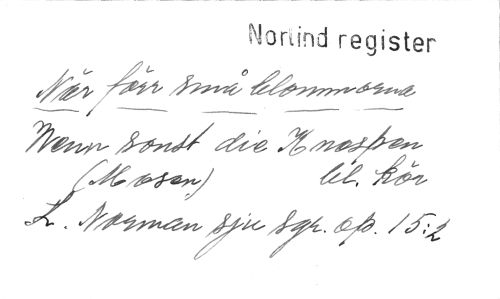 Norlind register
När förr små blommorna
Wenn sonst die Knospen
(Mosen) bl. kör
L. Norman sju sgr. op. 15:2